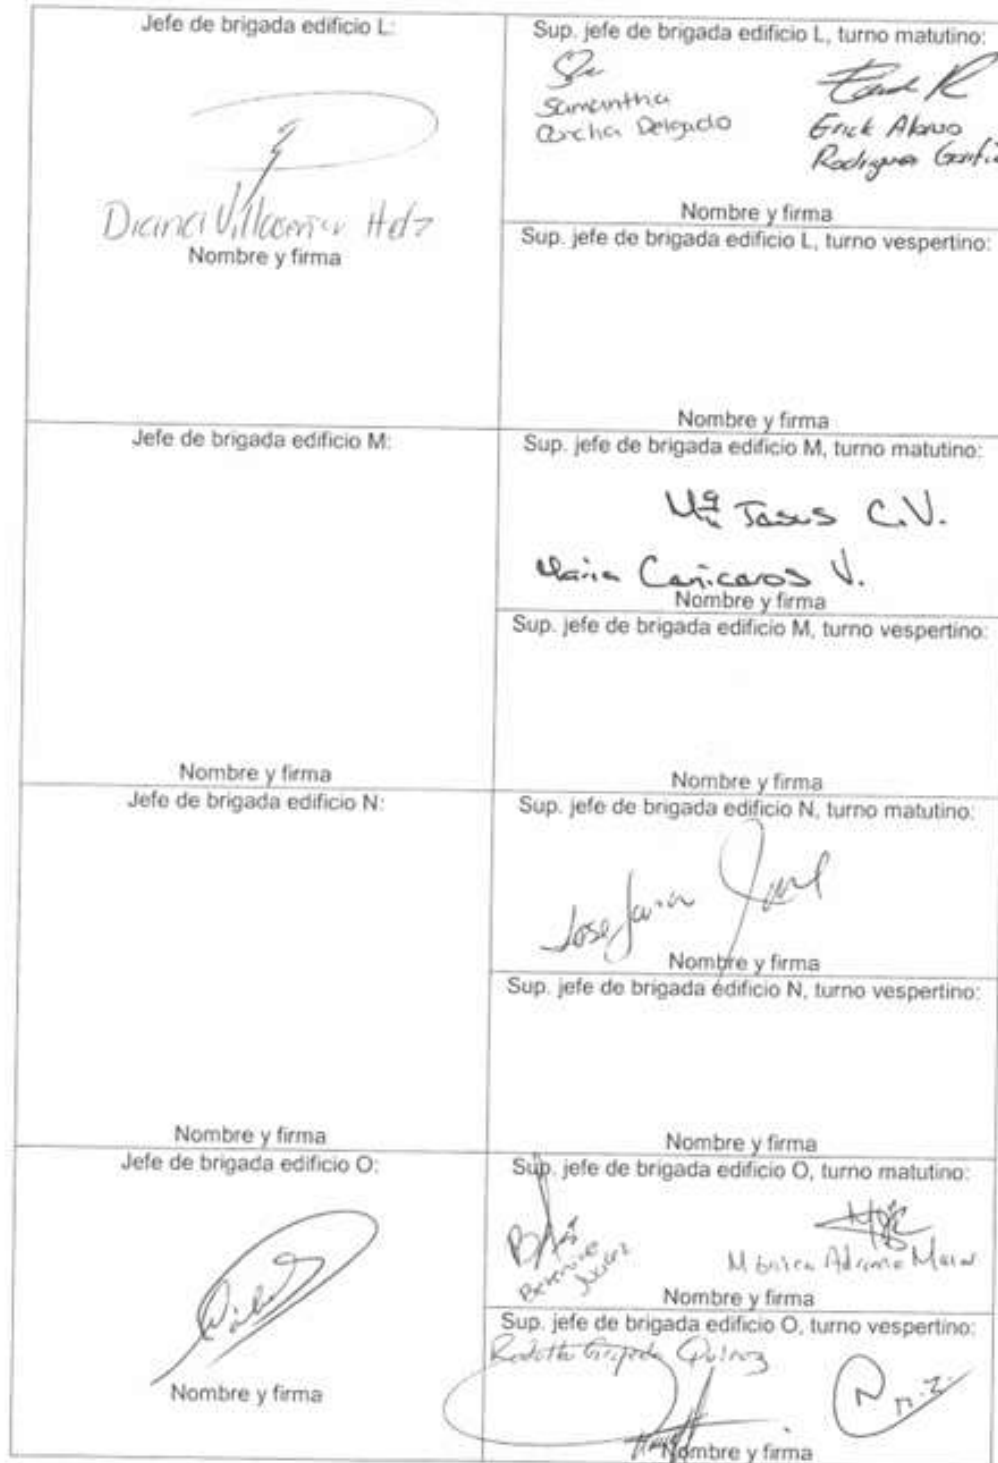 Jefe de brigada edificio L:
Nombre y firma
Sup. jefe de brigada edificio L, turno matutino:
Samantha
Concha Delgado
Erick Alonso
Nombre y firma
Sup. jefe de brigada edificio L, turno vespertino:
Nombre y firma
Jefe de brigada edificio M:
Nombre y firma
Sup. jefe de brigada edificio M, turno matutino:
C.V.
V.
Nombre y firma
Sup. jefe de brigada edificio M, turno vespertino:
Nombre y firma
Jefe de brigada edificio N:
Nombre y firma
Sup. jefe de brigada edificio N, turno matutino:
Jose
Nombre y firma
Sup. jefe de brigada edificio N, turno vespertino:
Nombre y firma
Jefe de brigada edificio O:
Nombre y firma
Sup. jefe de brigada edificio O, turno matutino:
Berenice
Mónica Adriana
Nombre y firma
Sup. jefe de brigada edificio O, turno vespertino:
Quiroz
Nombre y firma